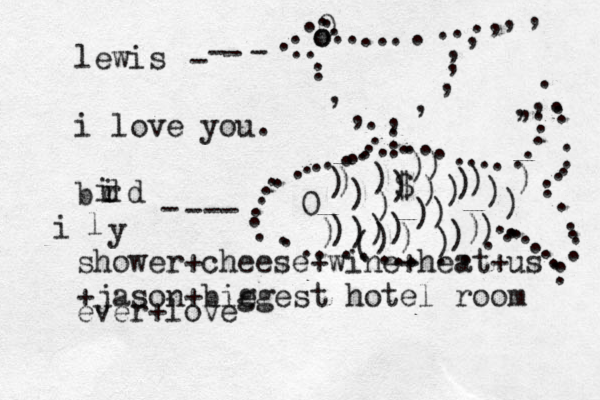 lewis ----
i love you.
bird ----
i ly
shower+cheese+wine+heat+us
+jason+biggest hotel room
ever+love